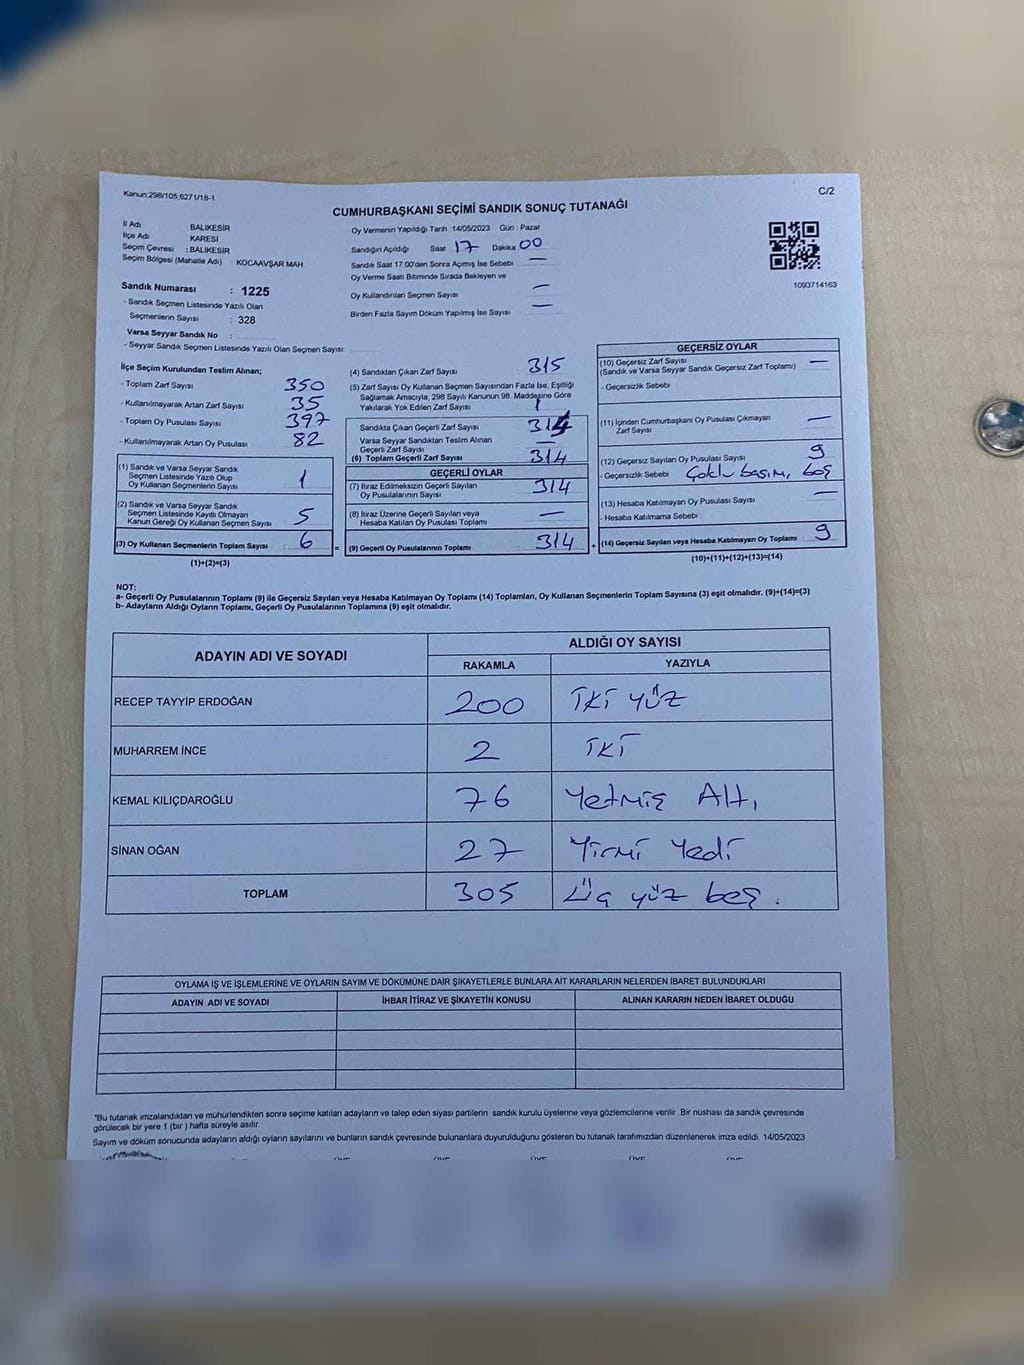 Kanun:298/105;6271/18-1
C/2
CUMHURBAŞKANI SEÇİMİ SANDIK SONUÇ TUTANAĞI
İl Adı : BALIKESİR
İlçe Adı : KARESİ
Seçim Çevresi : BALIKESİR
Seçim Bölgesi (Mahalle Adı) : KOCAAVŞAR MAH.
Sandık Numarası : 1225
- Sandık Seçmen Listesinde Yazılı Olan
Seçmenlerin Sayısı : 328
Varsa Seyyar Sandık No :
- Seyyar Sandık Seçmen Listesinde Yazılı Olan Seçmen Sayısı:
Oy Vermenin Yapıldığı Tarih 14/05/2023 Gün : Pazar
Sandığın Açıldığı Saat 17 Dakika 00
Sandık Saat 17:00'den Sonra Açılmış İse Sebebi : —
Oy Verme Saati Bitiminde Sırada Bekleyen ve
Oy Kullandırılan Seçmen Sayısı —
Birden Fazla Sayım Döküm Yapılmış İse Sayısı —
1093714163
İlçe Seçim Kurulundan Teslim Alınan;
- Toplam Zarf Sayısı : 350
- Kullanılmayarak Artan Zarf Sayısı : 35
- Toplam Oy Pusulası Sayısı : 397
- Kullanılmayarak Artan Oy Pusulası : 82
(1) Sandık ve Varsa Seyyar Sandık
Seçmen Listesinde Yazılı Olup
Oy Kullanan Seçmenlerin Sayısı : 1
(2) Sandık ve Varsa Seyyar Sandık
Seçmen Listesinde Kayıtlı Olmayan
Kanun Gereği Oy Kullanan Seçmen Sayısı : 5
(3) Oy Kullanan Seçmenlerin Toplam Sayısı : 6
(1)+(2)=(3)
=
(4) Sandıktan Çıkan Zarf Sayısı : 315
(5) Zarf Sayısı Oy Kullanan Seçmen Sayısından Fazla İse, Eşitliği
Sağlamak Amacıyla; 298 Sayılı Kanunun 98. Maddesine Göre
Yakılarak Yok Edilen Zarf Sayısı : 1
Sandıkta Çıkan Geçerli Zarf Sayısı : 314
Varsa Seyyar Sandıktan Teslim Alınan
Geçerli Zarf Sayısı : —
(6) Toplam Geçerli Zarf Sayısı : 314
GEÇERLİ OYLAR
(7) İtiraz Edilmeksizin Geçerli Sayılan
Oy Pusulalarının Sayısı : 314
(8) İtiraz Üzerine Geçerli Sayılan veya
Hesaba Katılan Oy Pusulası Toplamı : —
(9) Geçerli Oy Pusulalarının Toplamı : 314
+
GEÇERSİZ OYLAR
(10) Geçersiz Zarf Sayısı
(Sandık ve Varsa Seyyar Sandık Geçersiz Zarf Toplamı) : —
- Geçersizlik Sebebi :
(11) İçinden Cumhurbaşkanı Oy Pusulası Çıkmayan
Zarf Sayısı : —
(12) Geçersiz Sayılan Oy Pusulası Sayısı : 9
- Geçersizlik Sebebi : Çoklu basım, boş
(13) Hesaba Katılmayan Oy Pusulası Sayısı : —
- Hesaba Katılmama Sebebi :
(14) Geçersiz Sayılan veya Hesaba Katılmayan Oy Toplamı : 9
(10)+(11)+(12)+(13)=(14)
NOT:
a- Geçerli Oy Pusulalarının Toplamı (9) ile Geçersiz Sayılan veya Hesaba Katılmayan Oy Toplamı (14) Toplamları, Oy Kullanan Seçmenlerin Toplam Sayısına (3) eşit olmalıdır. (9)+(14)=(3)
b- Adayların Aldığı Oyların Toplamı, Geçerli Oy Pusulalarının Toplamına (9) eşit olmalıdır.
ADAYIN ADI VE SOYADI ALDIĞI OY SAYISI
RAKAMLA YAZIYLA
RECEP TAYYİP ERDOĞAN 200 İKİ YÜZ
MUHARREM İNCE 2 İKİ
KEMAL KILIÇDAROĞLU 76 Yetmiş Altı
SİNAN OĞAN 27 Yirmi Yedi
TOPLAM 305 Üç yüz beş.
OYLAMA İŞ VE İŞLEMLERİNE VE OYLARIN SAYIM VE DÖKÜMÜNE DAİR ŞİKAYETLERLE BUNLARA AİT KARARLARIN NELERDEN İBARET BULUNDUKLARI
ADAYIN ADI VE SOYADI İHBAR İTİRAZ VE ŞİKAYETİN KONUSU ALINAN KARARIN NEDEN İBARET OLDUĞU
*Bu tutanak imzalandıktan ve mühürlendikten sonra seçime katılan adayların ve talep eden siyasi partilerin sandık kurulu üyelerine veya gözlemcilerine verilir. Bir nüshası da sandık çevresinde
görülecek bir yere 1 (bir ) hafta süreyle asılır.
Sayım ve döküm sonucunda adayların aldığı oyların sayılarını ve bunların sandık çevresinde bulunanlara duyurulduğunu gösteren bu tutanak tarafımızdan düzenlenerek imza edildi. 14/05/2023